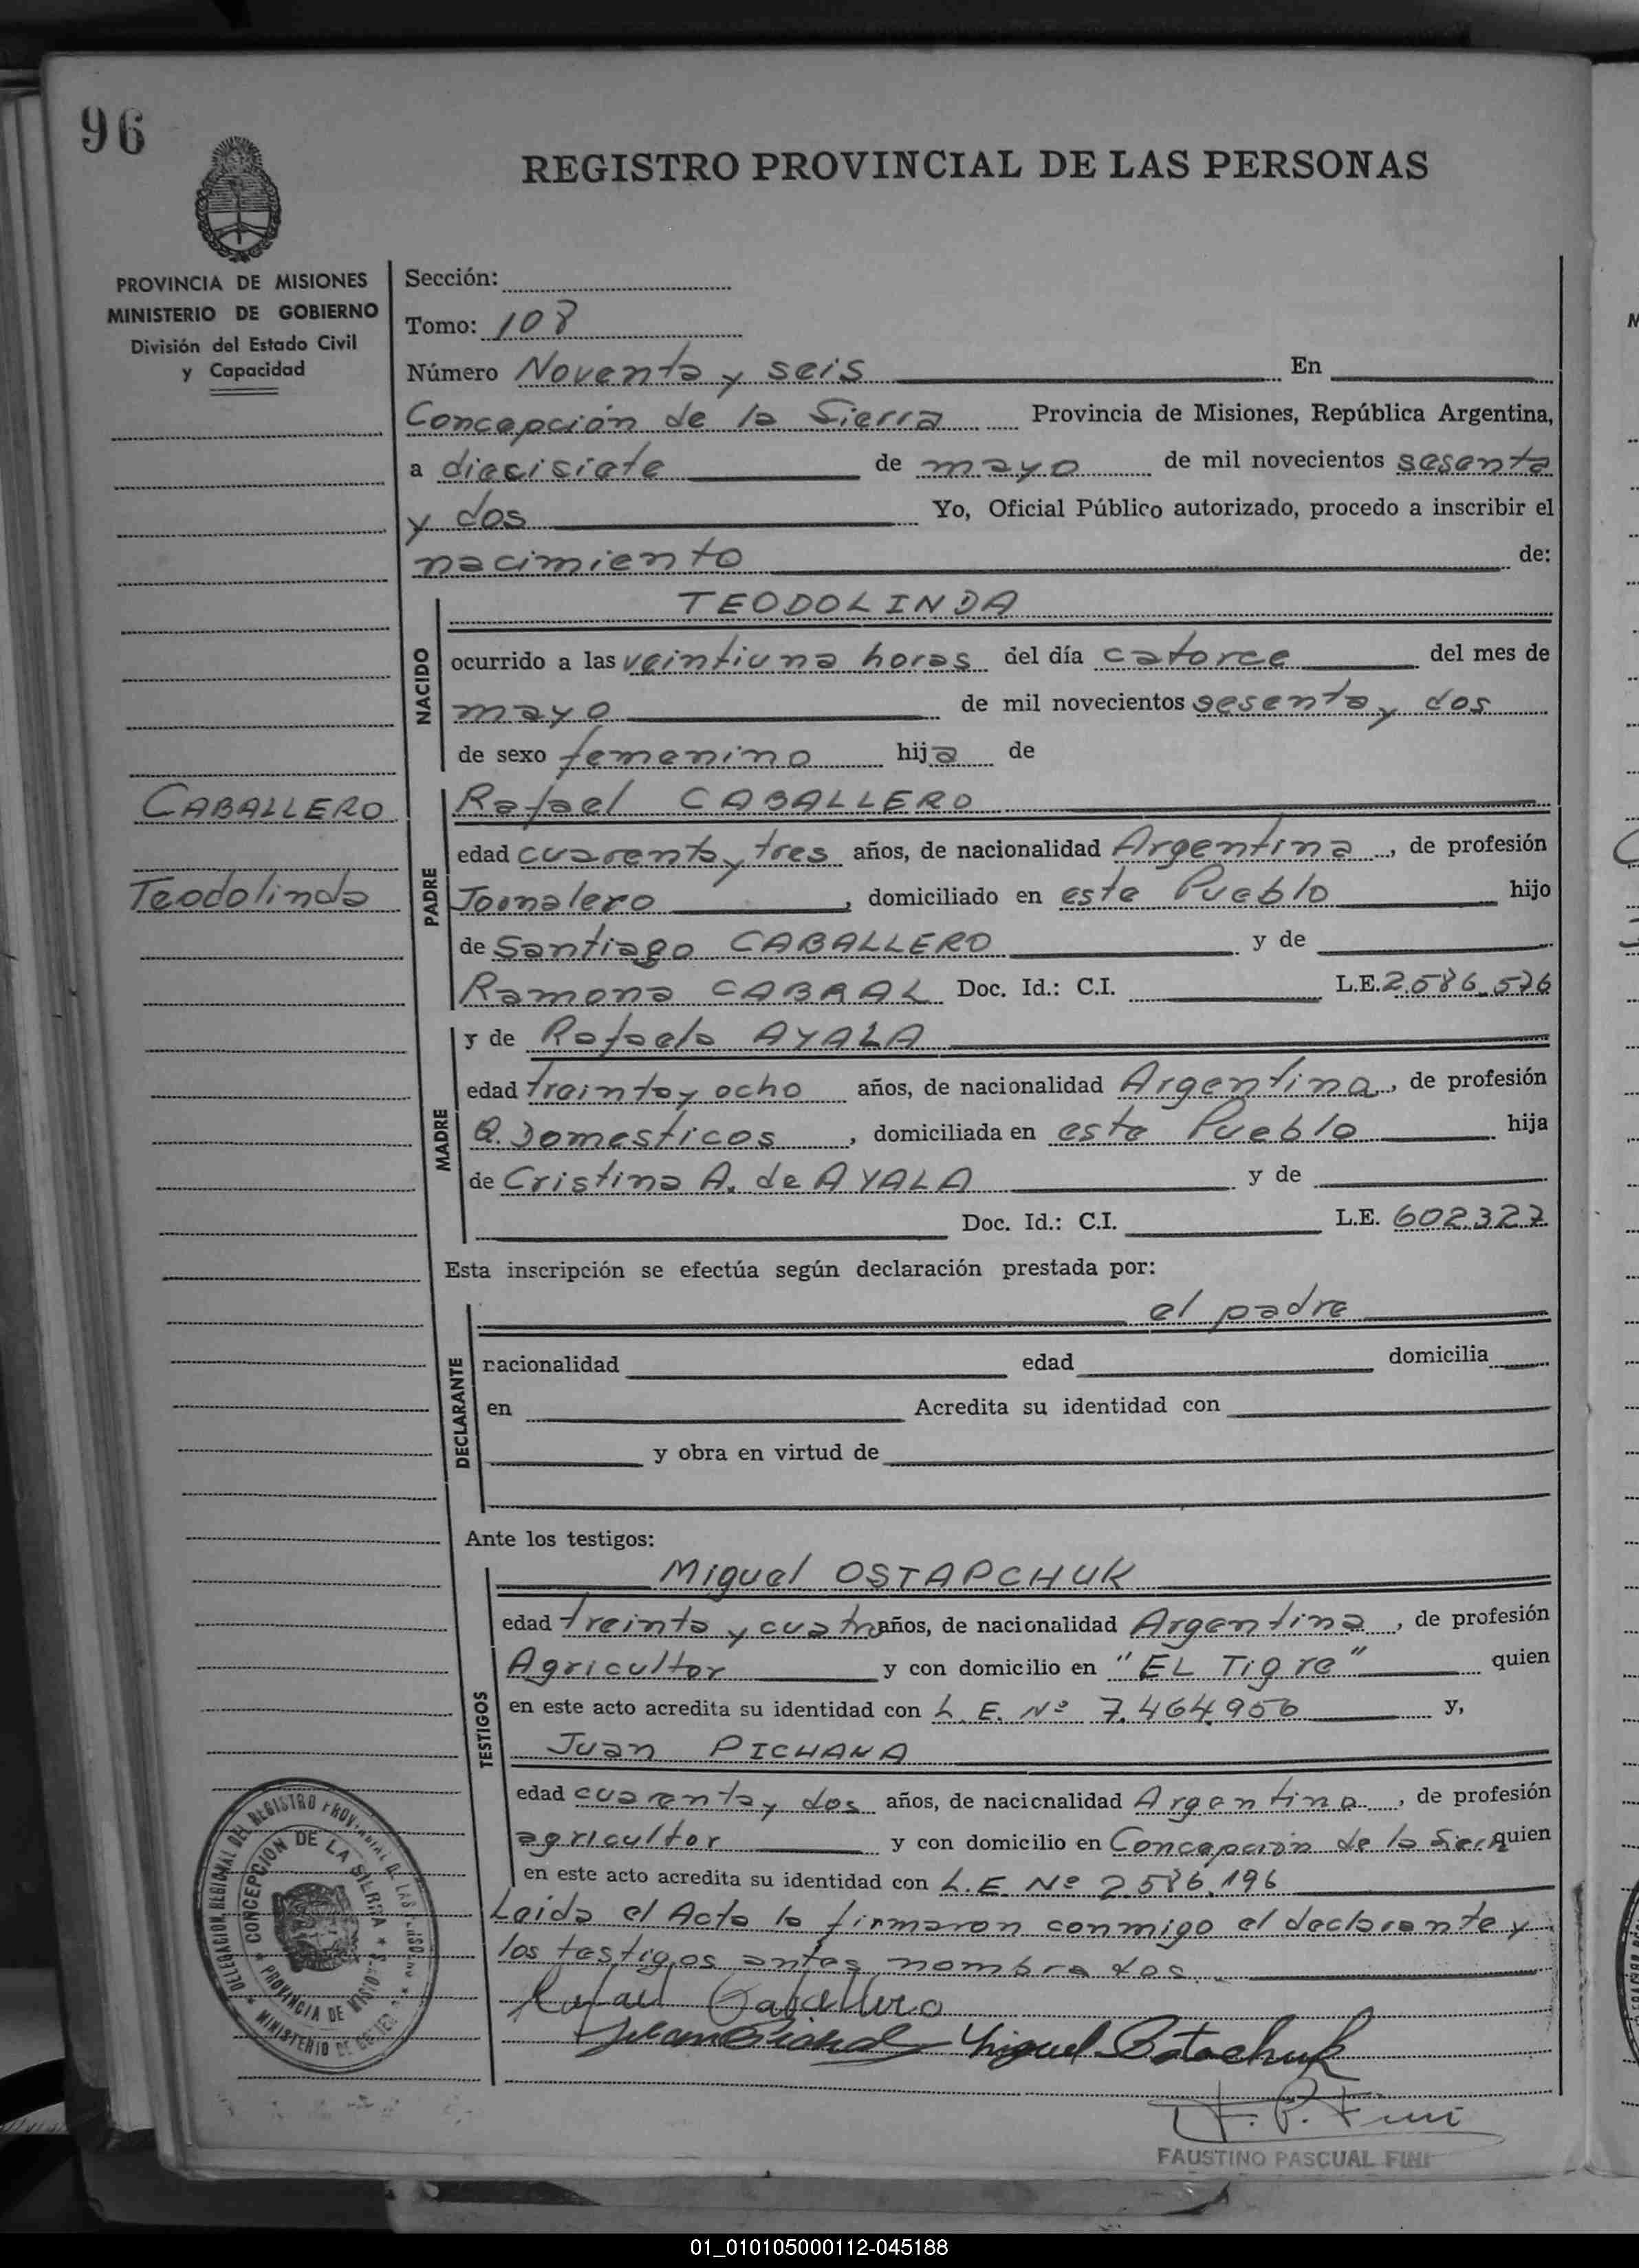 96
REGISTRO PROVINCIAL DE LAS PERSONAS
PROVINCIA DE MISIONES
MINISTERIO DE GOBIERNO
División del Estado Civil
y Capacidad
Sección:
Tomo: 108
Número Noventa y seis En
Concepción de la Sierra Provincia de Misiones, República Argentina,
a diecisiete de mayo de mil novecientos sesenta
y dos Yo, Oficial Público autorizado, procedo a inscribir el
nacimiento de:
NACIDO
TEODOLINDA
ocurrido a las veintiuna horas del día catorce del mes de
mayo de mil novecientos sesenta y dos
de sexo femenino hija de
CABALLERO
Teodolinda
PADRE
Rafael CABALLERO
edad cuarenta y tres años, de nacionalidad Argentina, de profesión
Jornalero, domiciliado en este Pueblo hijo
de Santiago CABALLERO y de
Ramona CABRAL Doc. Id.: C.I. L.E. 2.586.576
MADRE
y de Rafaela AYALA
edad treinta y ocho años, de nacionalidad Argentina, de profesión
Q. Domesticos, domiciliada en este Pueblo hija
de Cristina A. de AYALA y de
Doc. Id.: C.I. L.E. 602.327
Esta inscripción se efectúa según declaración prestada por:
DECLARANTE
el padre
nacionalidad edad domicilia
en Acredita su identidad con
y obra en virtud de
Ante los testigos:
TESTIGOS
Miguel OSTAPCHUK
edad treinta y cuatro años, de nacionalidad Argentina, de profesión
Agricultor y con domicilio en "EL Tigre" quien
en este acto acredita su identidad con L. E. Nº 7.464.956 y,
Juan PICHAKA
edad cuarenta y dos años, de nacionalidad Argentina, de profesión
agricultor y con domicilio en Concepción de la Sierra quien
en este acto acredita su identidad con L.E. Nº 2.586.196
Leida el Acta la firmaron conmigo el declarante y
los testigos antes nombrados.
Rafael Caballero
Miguel Ostachuk
F. P. Fini
FAUSTINO PASCUAL FINI
DELEGACION REGIONAL DEL REGISTRO PROVINCIAL DE LAS PERSONAS
CONCEPCION DE LA SIERRA
PROVINCIA DE MISIONES
MINISTERIO DE GOBIERNO
01_010105000112-045188